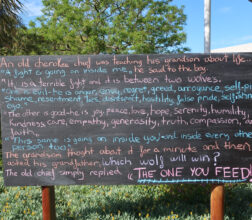 An old cherokee chief was teaching his grandson about life...
"A fight is going on inside me," he said to the boy.
"It is a terrible fight and it is between two wolves.
"One is evil - he is anger, envy, regret, greed, arrogance, self-pity,
Shame, resentment, lies, dishonesty, hostility, false pride, self-
"The other is good - he is joy, peace, love, hope, serenity, humility,
kindness, care, empathy, generosity, truth, compassion,
faith.
"This same fight is going on inside you - and inside every other
person too."
The grandson thought about it for a minute and then
asked his grandfather, "which wolf will win?"
The old chief simply replied "THE ONE YOU FEED"